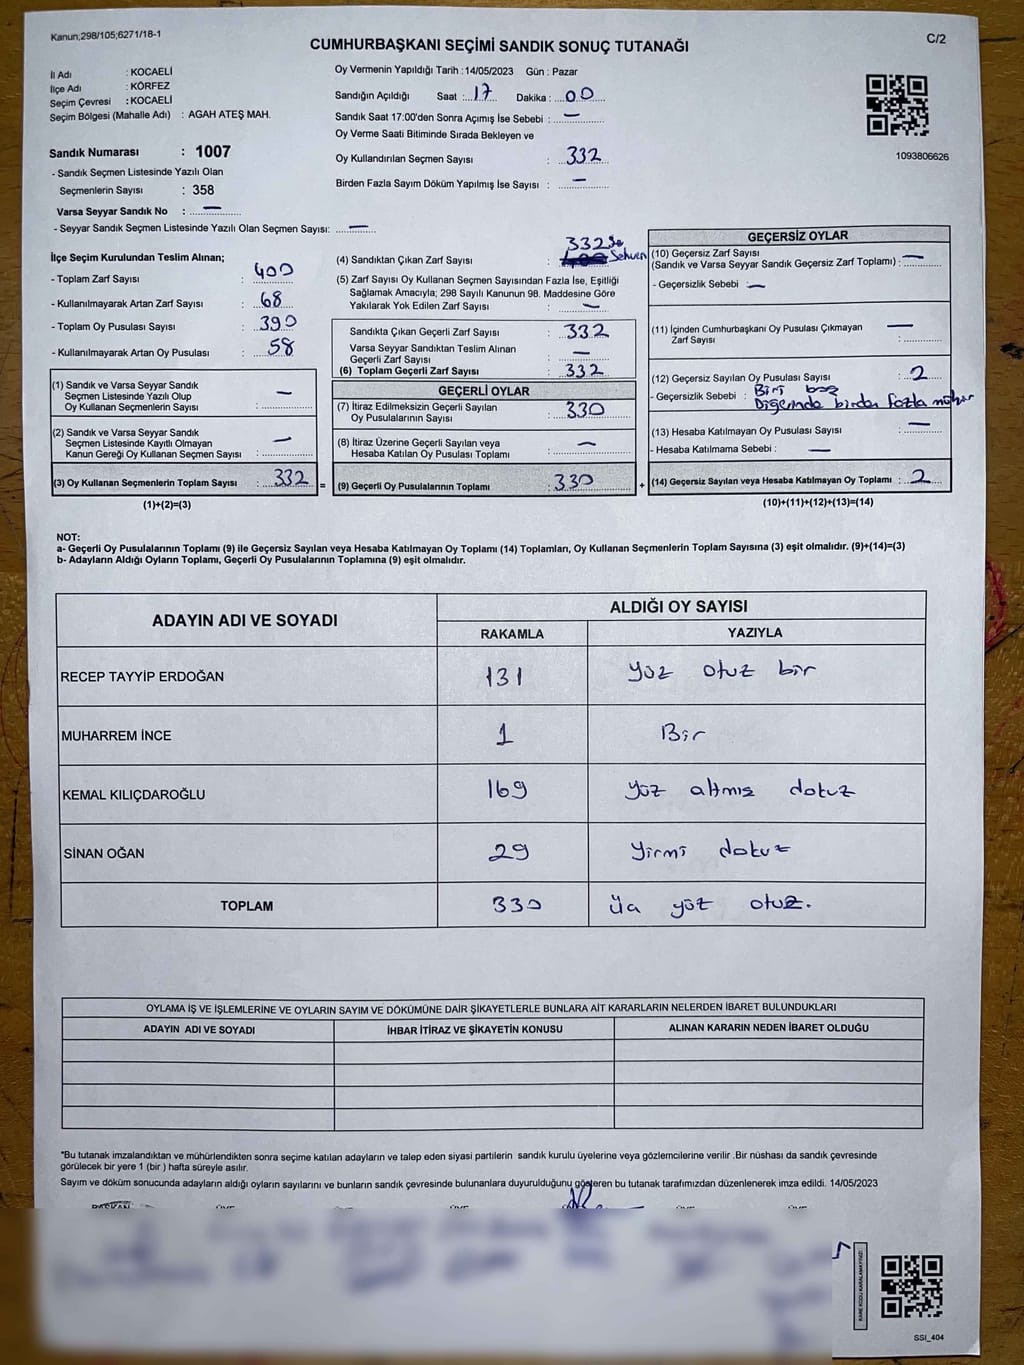 Kanun;298/105;6271/18-1
C/2
CUMHURBAŞKANI SEÇİMİ SANDIK SONUÇ TUTANAĞI
İl Adı : KOCAELİ
İlçe Adı : KÖRFEZ
Seçim Çevresi : KOCAELİ
Seçim Bölgesi (Mahalle Adı) : AGAH ATEŞ MAH.
Sandık Numarası : 1007
- Sandık Seçmen Listesinde Yazılı Olan
Seçmenlerin Sayısı : 358
Varsa Seyyar Sandık No : —
- Seyyar Sandık Seçmen Listesinde Yazılı Olan Seçmen Sayısı: —
Oy Vermenin Yapıldığı Tarih : 14/05/2023 Gün : Pazar
Sandığın Açıldığı Saat : 17 Dakika : 00
Sandık Saat 17:00'den Sonra Açımış İse Sebebi : —
Oy Verme Saati Bitiminde Sırada Bekleyen ve
Oy Kullandırılan Seçmen Sayısı : 332
Birden Fazla Sayım Döküm Yapılmış İse Sayısı : —
1093806626
İlçe Seçim Kurulundan Teslim Alınan;
- Toplam Zarf Sayısı : 400
- Kullanılmayarak Artan Zarf Sayısı : 68
- Toplam Oy Pusulası Sayısı : 390
- Kullanılmayarak Artan Oy Pusulası : 58
(1) Sandık ve Varsa Seyyar Sandık
Seçmen Listesinde Yazılı Olup
Oy Kullanan Seçmenlerin Sayısı : —
(2) Sandık ve Varsa Seyyar Sandık
Seçmen Listesinde Kayıtlı Olmayan
Kanun Gereği Oy Kullanan Seçmen Sayısı : —
(3) Oy Kullanan Seçmenlerin Toplam Sayısı : 332 =
(1)+(2)=(3)
332
(4) Sandıktan Çıkan Zarf Sayısı : Sehven
(5) Zarf Sayısı Oy Kullanan Seçmen Sayısından Fazla İse, Eşitliği
Sağlamak Amacıyla; 298 Sayılı Kanunun 98. Maddesine Göre
Yakılarak Yok Edilen Zarf Sayısı : —
Sandıkta Çıkan Geçerli Zarf Sayısı : 332
Varsa Seyyar Sandıktan Teslim Alınan
Geçerli Zarf Sayısı : —
(6) Toplam Geçerli Zarf Sayısı : 332
GEÇERLİ OYLAR
(7) İtiraz Edilmeksizin Geçerli Sayılan
Oy Pusulalarının Sayısı : 330
(8) İtiraz Üzerine Geçerli Sayılan veya
Hesaba Katılan Oy Pusulası Toplamı : —
(9) Geçerli Oy Pusulalarının Toplamı : 330 +
GEÇERSİZ OYLAR
(10) Geçersiz Zarf Sayısı
(Sandık ve Varsa Seyyar Sandık Geçersiz Zarf Toplamı) : —
- Geçersizlik Sebebi : —
(11) İçinden Cumhurbaşkanı Oy Pusulası Çıkmayan
Zarf Sayısı : —
(12) Geçersiz Sayılan Oy Pusulası Sayısı : 2
- Geçersizlik Sebebi : Biri boş
Diğerinde birden fazla mühür
(13) Hesaba Katılmayan Oy Pusulası Sayısı : —
- Hesaba Katılmama Sebebi : —
(14) Geçersiz Sayılan veya Hesaba Katılmayan Oy Toplamı : 2
(10)+(11)+(12)+(13)=(14)
NOT:
a- Geçerli Oy Pusulalarının Toplamı (9) ile Geçersiz Sayılan veya Hesaba Katılmayan Oy Toplamı (14) Toplamları, Oy Kullanan Seçmenlerin Toplam Sayısına (3) eşit olmalıdır. (9)+(14)=(3)
b- Adayların Aldığı Oyların Toplamı, Geçerli Oy Pusulalarının Toplamına (9) eşit olmalıdır.
ADAYIN ADI VE SOYADI
ALDIĞI OY SAYISI
RAKAMLA YAZIYLA
RECEP TAYYİP ERDOĞAN 131 Yüz otuz bir
MUHARREM İNCE 1 Bir
KEMAL KILIÇDAROĞLU 169 Yüz altmış dokuz
SİNAN OĞAN 29 Yirmi dokuz
TOPLAM 330 Üç yüz otuz.
OYLAMA İŞ VE İŞLEMLERİNE VE OYLARIN SAYIM VE DÖKÜMÜNE DAİR ŞİKAYETLERLE BUNLARA AİT KARARLARIN NELERDEN İBARET BULUNDUKLARI
ADAYIN ADI VE SOYADI İHBAR İTİRAZ VE ŞİKAYETİN KONUSU ALINAN KARARIN NEDEN İBARET OLDUĞU
*Bu tutanak imzalandıktan ve mühürlendikten sonra seçime katılan adayların ve talep eden siyasi partilerin sandık kurulu üyelerine veya gözlemcilerine verilir .Bir nüshası da sandık çevresinde
görülecek bir yere 1 (bir ) hafta süreyle asılır.
Sayım ve döküm sonucunda adayların aldığı oyların sayılarını ve bunların sandık çevresinde bulunanlara duyurulduğunu gösteren bu tutanak tarafımızdan düzenlenerek imza edildi. 14/05/2023
BAŞKAN
KARE KODU KARALAMAYINIZ!
SSI_404